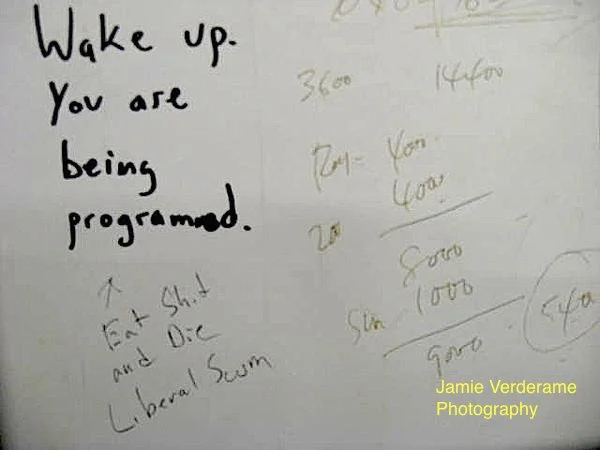 Wake up.
You are
being
programmed.
↑
Eat Shit
and Die
Liberal Scum
3600 14400
4000
4000
8000
1000
9000
540
Jamie Verderame
Photography